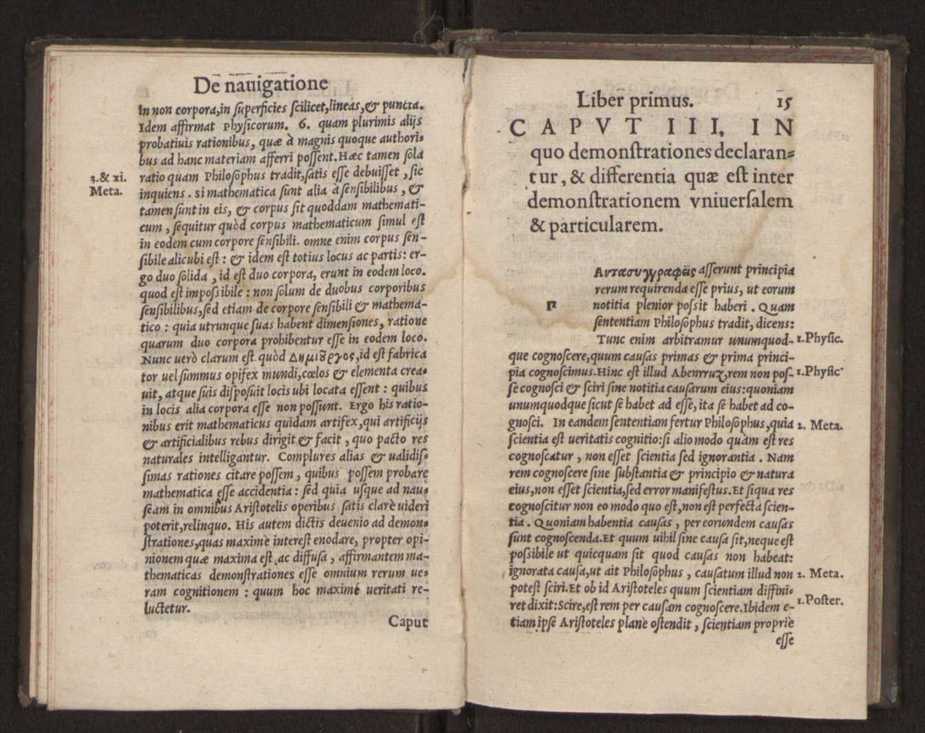 De nauigatione
in non corpora,in superficies scilicet,lineas,& puncta.
Idem affirmat Physicorum. 6. quam plurimis alijs
probatiuis rationibus, quæ à magnis quoque authori-
bus ad hanc materiam afferri possent.Hæc tamen sola
3.& xi. ratio quam Philosophus tradit,satis esse debuisset , sic
Meta. inquiens . si mathematica sunt alia à sensibilibus , &
tamen sunt in eis, & corpus sit quoddam mathemati-
cum , sequitur quòd corpus mathematicum simul est
in eodem cum corpore sensibili. omne enim corpus sen-
sibile alicubi est : & idem est totius locus ac partis: er-
go duo solida , id est duo corpora, erunt in eodem loco.
quod est impossibile : non solum de duobus corporibus
sensibilibus,sed etiam de corpore sensibili & mathema-
tico : quia utrunque suas habent dimensiones, ratione
quarum duo corpora prohibentur esse in eodem loco.
Nunc verò clarum est quòd Δημιȣργος,id est fabrica
tor vel summus opifex mundi,cœlos & elementa crea-
uit, atque suis disposuit locis ubi locata essent : quibus
in locis alia corpora esse non possunt. Ergo his ratio-
nibus erit mathematicus quidam artifex,qui artificijs
& artificialibus rebus dirigit & facit , quo pacto res
naturales intelligantur. Complures alias & ualidis-
simas rationes citare possem, quibus possem probare
mathematica esse accidentia : sed quia usque ad nau-
seam in omnibus Aristotelis operibus satis clarè uideri
poterit,relinquo. His autem dictis deuenio ad demon-
strationes,quas maximè interest enodare, propter opi-
nionem quæ maxima est ac diffusa , affirmantem ma-
thematicas demonstrationes esse omnium rerum ue-
ram cognitionem : quum hoc maximè ueritati re-
luctetur.
Caput
Liber primus. 15
CAPVT III, IN
quo demonstrationes declaran-
tur, & differentia quæ est inter
demonstrationem vniuersalem
& particularem.
asserunt principia
rerum requirenda esse prius, ut eorum
notitia plenior possit haberi . Quam
sententiam Philosophus tradit, dicens:
Tunc enim arbitramur unumquod- 1.Physic.
que cognoscere,quum causas primas & prima princi-
pia cognoscimus.Hinc est illud Abenrruz,rem non pos- 1.Physic
se cognosci & sciri sine notitia causarum eius:quoniam
unumquodque sicut se habet ad esse, ita se habet ad co-
gnosci. In eandem sententiam fertur Philosophus,quia 2. Meta.
scientia est ueritatis cognitio: si alio modo quàm est res
cognoscatur , non esset scientia sed ignorantia . Nam
rem cognoscere sine substantia & principio & natura
eius,non esset scientia,sed error manifestus.Et si qua res
cognoscitur non eo modo quo est,non est perfecta scien-
tia . Quoniam habentia causas , per eorundem causas
sunt cognoscenda.Et quum nihil sine causa sit,neque est
possibile ut quicquam sit quod causas non habeat:
ignorata causa,ut ait Philosophus , causatum illud non 2. Meta.
potest sciri.Et ob id Aristoteles quum scientiam diffini-
ret dixit:Scire,est rem per causam cognoscere.Ibidem e- 1.Poster.
tiam ipse Aristoteles planè ostendit , scientiam propriè
esse